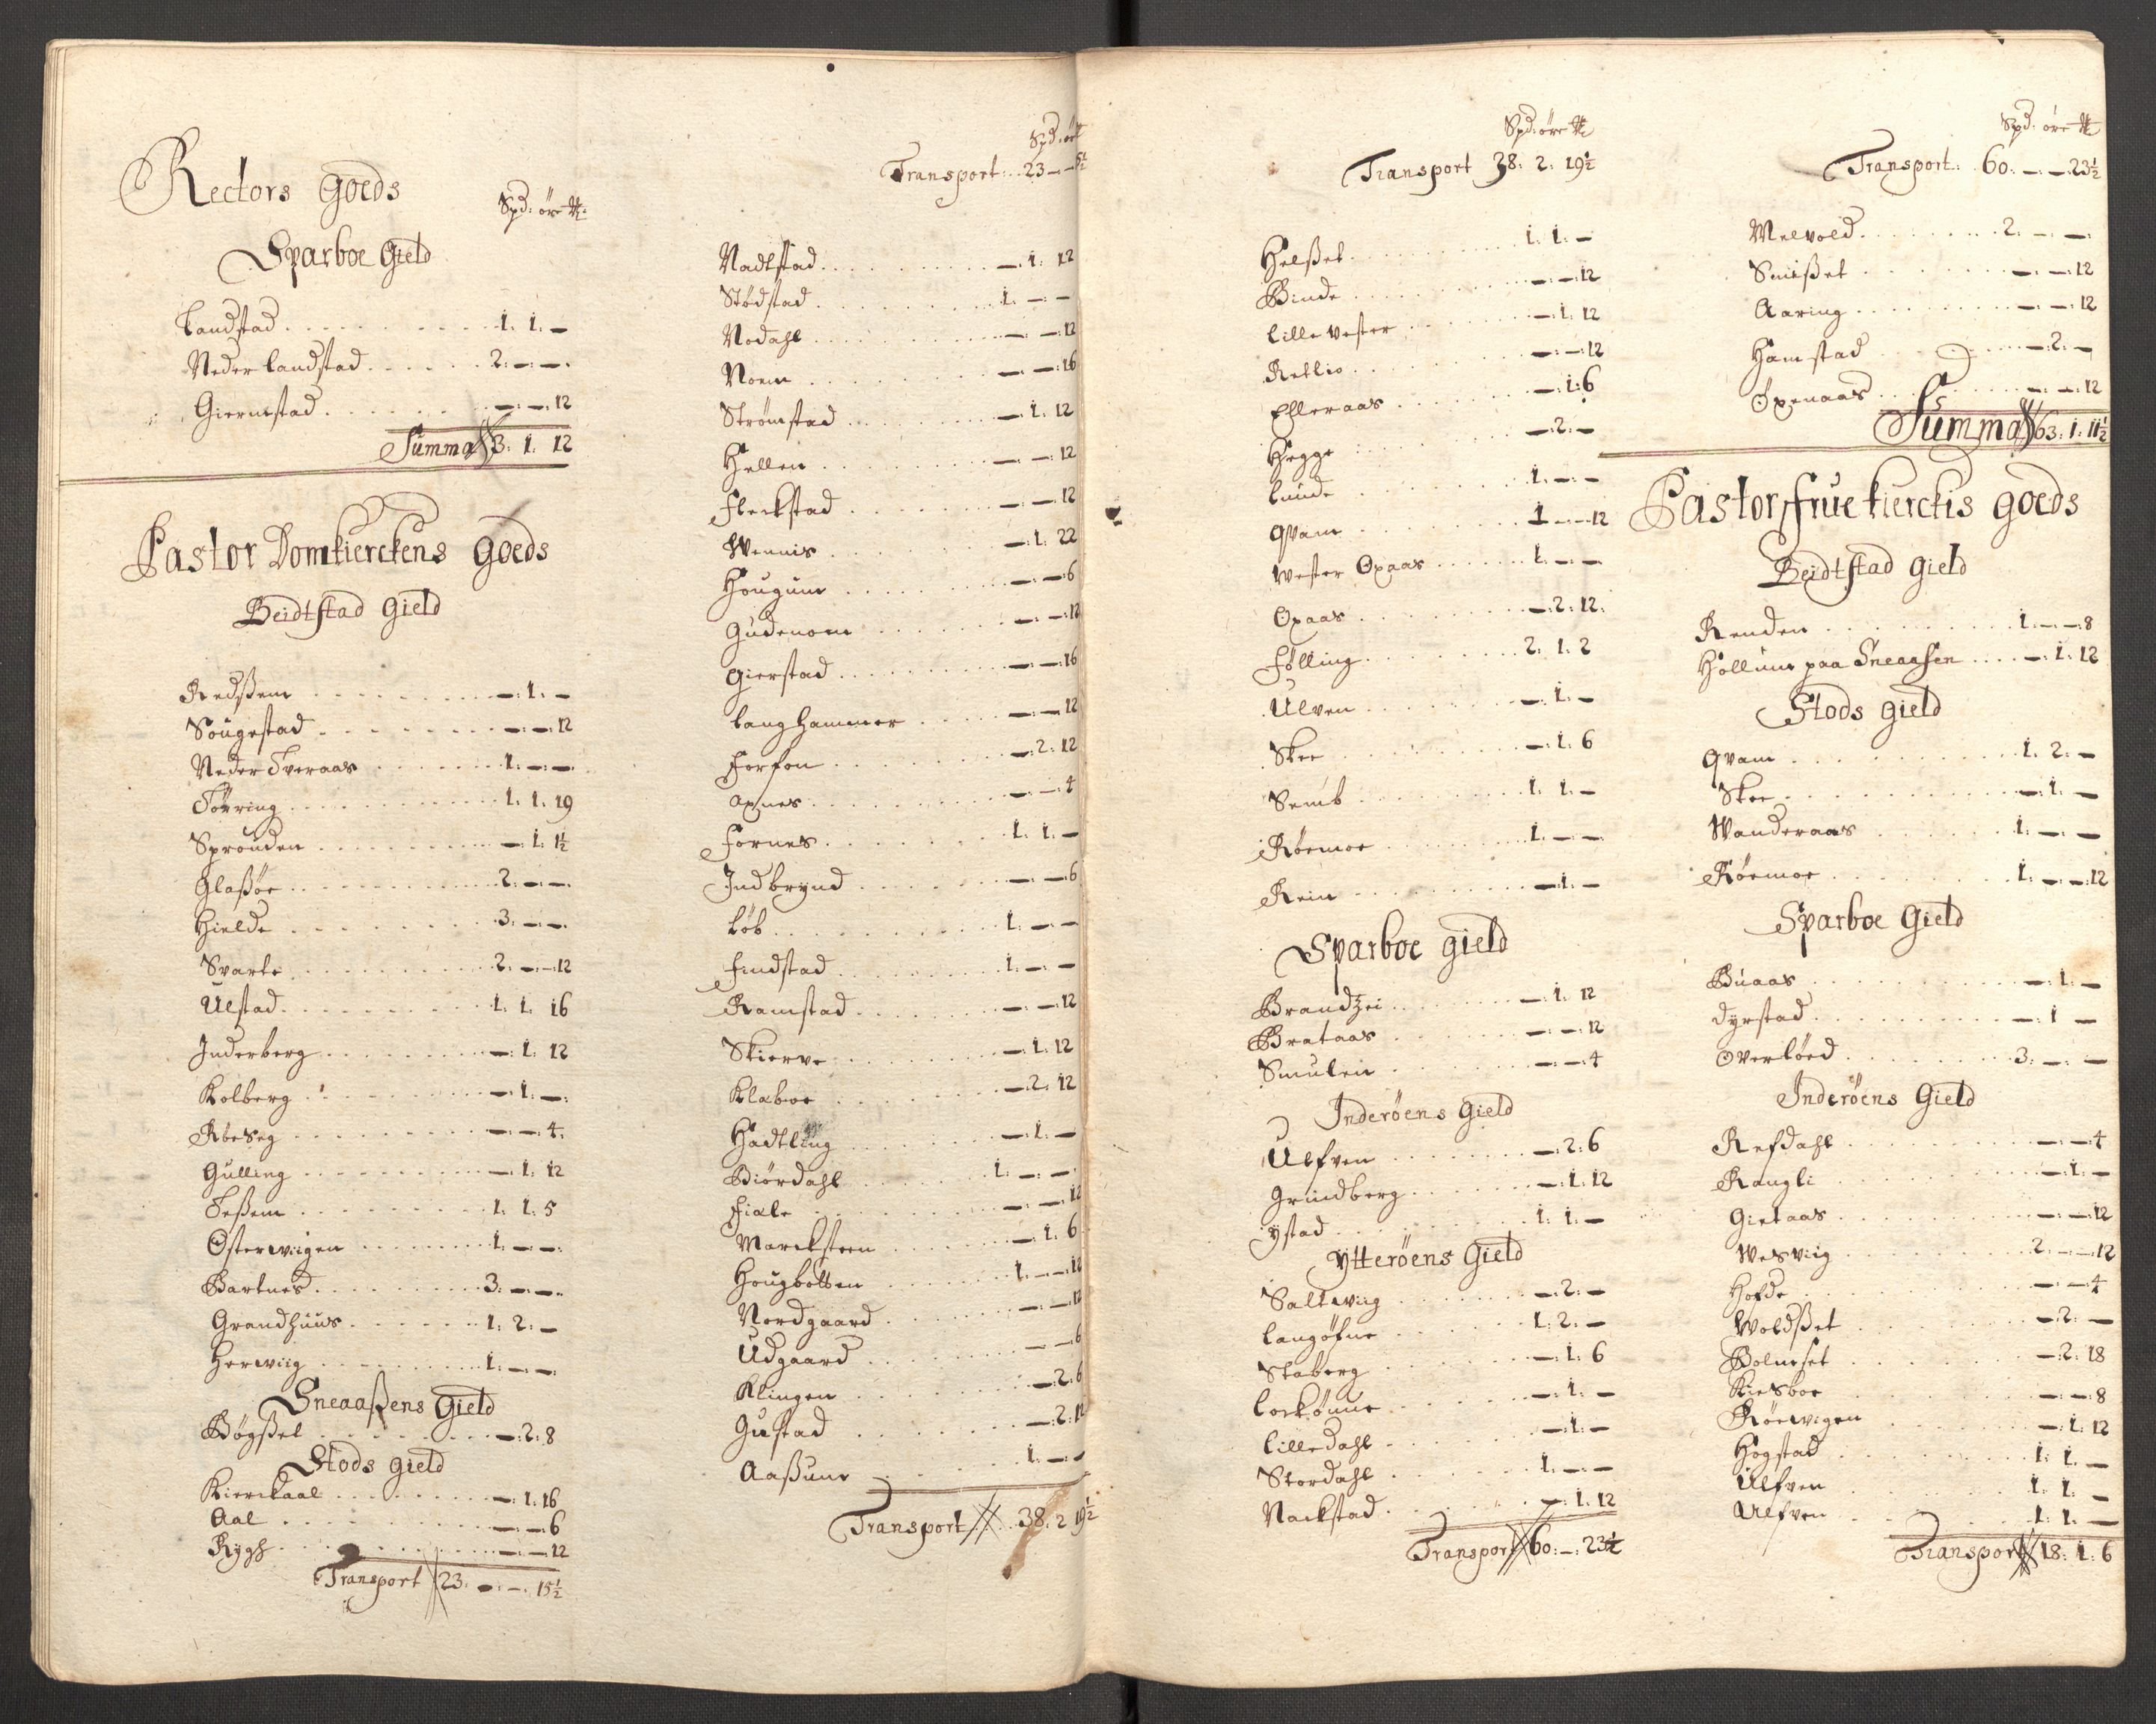 Rectors goeds
Spd: öre
Sparboe Gield
Landstad . . . 1: 1: —
Neder Landstad . . . 2: —: —
Giermstad . . . —: —: 12
Summa 3: 1: 12
Pastor Domkierckens goeds
Beidtstad Gield
Redßem . . . —: 1: —
Sougestad . . . —: —: 12
Neder Tveraas . . . 1: —: —
Törring . . . 1: 1: 19
Sprouden . . . —: 1: 1½
Glaßöe . . . 2: —: —
Hielde . . . 3: —: —
Svarte . . . 2: —: 12
Ulstad . . . 1: 1: 16
Inderberg . . . —: 1: 12
Kolberg . . . —: 1: —
Röeseg . . . —: —: 4
Gulling . . . —: 1: 12
Teßem . . . 1: 1: 5
Osterwiigen . . . 1: —: —
Bartnes . . . 3: —: —
Grandhuus . . . 1: 2: —
Herwiig . . . 1: —: —
Sneaaßens Gield
Bögßet . . . —: 2: 8
Stods gield
Kierckaal . . . —: 1: 16
Aal . . . —: —: 6
Rygh . . . —: —: 12
Transport 23: —: —: 15½
Spd: ör
Transport: 23 — —
Nadtstad . . . —: 1: 12
Stödstad . . . 1: —: —
Nodahl . . . —: —: 12
Noem . . . —: —: 16
Strömstad . . . —: 1: 12
Hellen . . . —: —: 12
Fleckstad . . . —: —: 12
Wennis . . . —: 1: 22
Hougum . . . —: —: 6
Gudenom . . . —: —: 12
Gierstad . . . —: —: 16
Langhammer . . . —: —: 12
Forfon . . . —: 2: 12
Axnes . . . —: —: 4
Fornes . . . 1: 1: —
Indbrynd . . . —: —: 6
Löb . . . 1: —: —
Findstad . . . 1: —: —
Ramstad . . . —: —: 12
Skierve . . . —: 1: 12
Klaboe . . . —: 2: 12
Hadtling . . . —: 1: —
Biördahl . . . 1: —: —
Fiale . . . —: —: 12
Marcksteen . . . —: 1: 6
Hougbotten . . . 1: —: 12
Nordgaard . . . —: —: 12
Udgaard . . . —: —: 6
Klingen . . . —: 2: 6
Gustad . . . —: 2: 12
Aaßum . . . 1: —: —
Transport 38: 2 19½
Spd: öre
Transport 38: 2: 19½
Helßet . . . 1: 1: —
Binde . . . —: —: 12
Lille Vester . . . —: 1: 12
Rellio . . . —: —: 12
Elleraas . . . —: 1: 6
Hegge . . . —: 2: —
Lunde . . . 1: —: —
Qvam . . . 1: —: 12
Wester Oxaas . . . 1: —: —
Oxaas . . . —: 2: 12
Fölling . . . 2: 1: 2
Ulven . . . —: 1: —
Skee . . . —: 1: 6
Semb . . . 1: 1: —
Röemoe . . . 1: —: —
Rein . . . —: 1: —
Sparboe gield
Brandzei . . . —: 1: 12
Brataas . . . —: —: 12
Smulen . . . —: —: 4
Inderöens Gield
Ulfven . . . —: 2: 6
Grundberg . . . —: 1: 12
ystad . . . 1: 1: —
Ytteröens Gield
Saltwiig . . . —: 2: —
Langöfne . . . 1: 2: —
Staberg . . . —: 1: 6
Lockömne . . . —: 1: —
Lilledahl . . . —: 1: —
Stordahl . . . 1: —: —
Nackstad . . . —: 1: 12
Transport 60: —: 23½
Spd: öre
Transport: 60: —: 23½
Melvold . . . 2: —: —
Smißet . . . —: —: 12
Aaring . . . —: —: 12
Hamstad . . . —: 2: —
Oxenaas . . . —: —: 12
Summa 63: 1: 11½
Pastor fruekierckis goeds
Beidtstad gield
Renden . . . 1: —: 8
Hollum paa Sneaasen . . . —: 1: 12
Stods gield
Qvam . . . 1: 2: —
Skee . . . —: 1: —
Wanderaas . . . 1: —: —
Röemoe . . . 1: —: 12
Sparboe Gield
Buaas . . . —: 1: —
dyrstad . . . —: 1 —
Overlöed . . . 3: —: —
Inderöens Gield
Refdahl . . . —: —: 4
Rangli . . . —: 1: —
Gietaas . . . —: —: 12
Wesviig . . . 2: —: 12
Hofde . . . —: —: 4
Woldßet . . . —: 2: —
Bolmset . . . —: 2: 18
Kiesboe . . . —: —: 8
Röewigen . . . —: 1: 12
Hogstad . . . 1: 1: —
Ulfven . . . 1: 1: —
Ulfven . . . 1: 1: —
Transport 18: 1: 6